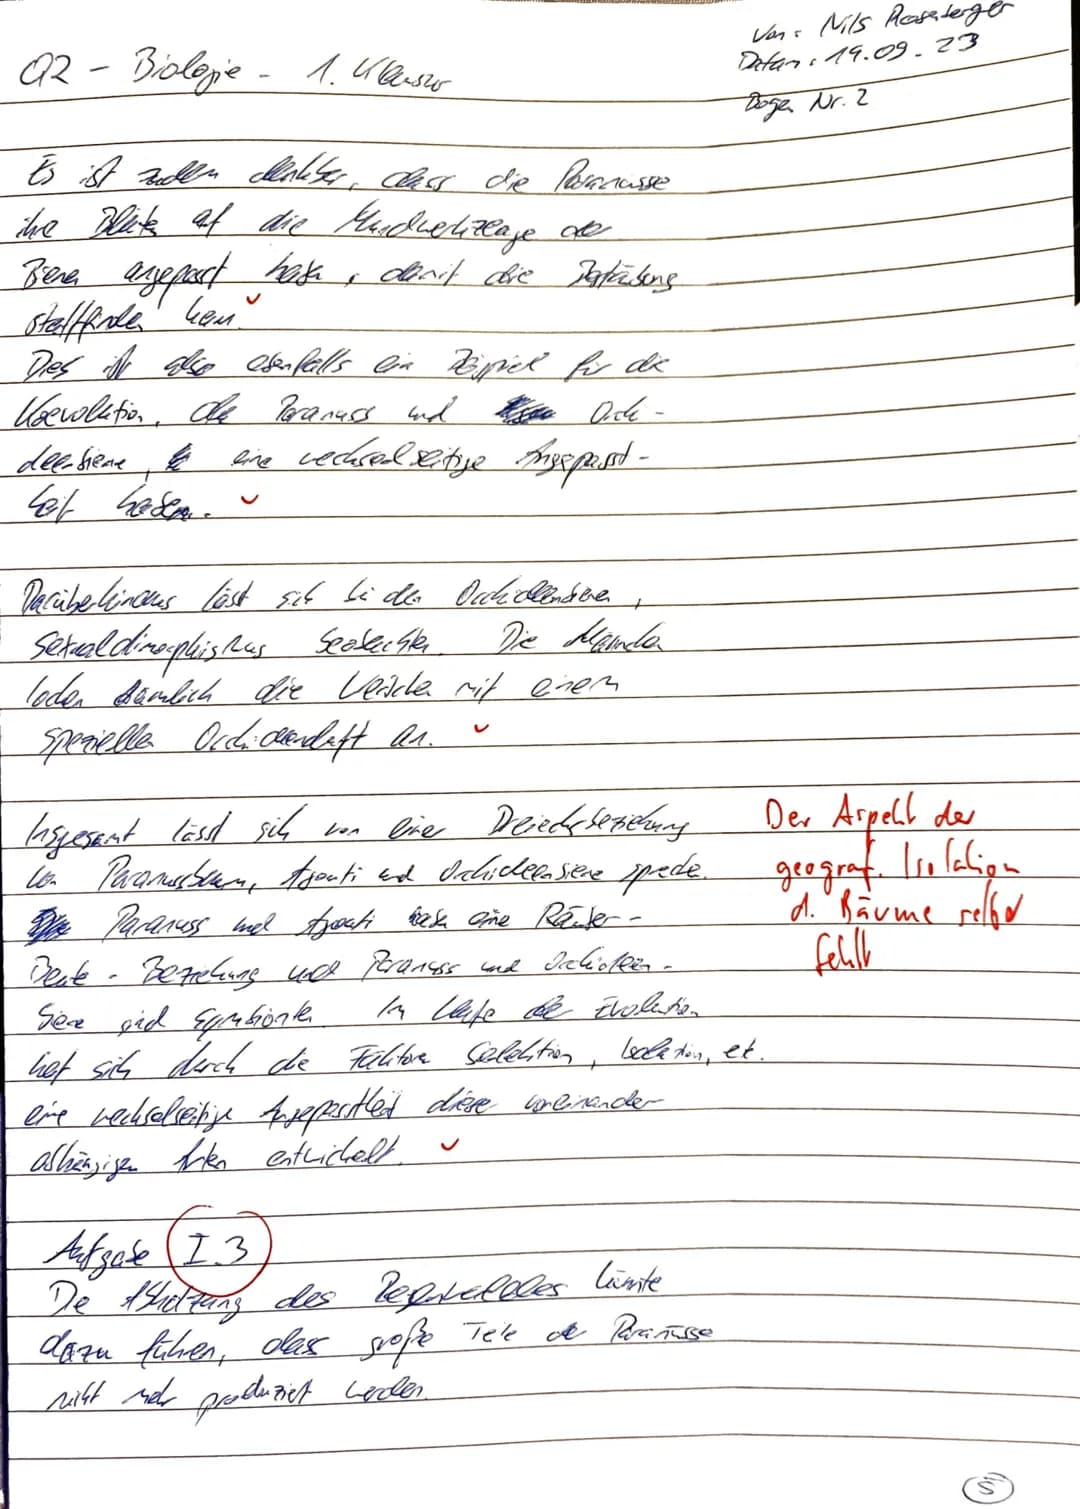 Q2 - Biologie - 1. Klausur
Von: Nils
Datum: 19.09.23
Bogen Nr. 2
Es ist zudem denkbar, dass die Paranüsse
ihre Blüten auf die Mundwerkzeuge der
Bienen angepasst haben, damit die Bestäubung
stattfinden kann.
Dies ist also ebenfalls ein Beispiel für die
Koevolution, da Paranuss und Orchi-
deenbiene, eine wechselseitige Angepasst-
heit haben.
Darüberhinaus lässt sich bei den Orchideenbienen,
Sexualdimorphismus beobachten. Die Männchen
locken nämlich die Weibchen mit einem
speziellen Orchideenduft an.
Insgesamt lässt sich von einer Dreiecksbeziehung
von Paranussbaum, Agouti und Orchideenbiene sprechen.
Paranuss und Agouti haben eine Räuber-
Beute-Beziehung und Paranuss und Orchideen-
biene sind Symbionten. Im Laufe der Evolution
hat sich durch die Faktoren Selektion, Isolation, etc.
eine wechselseitige Angepasstheit dieser voneinander
abhängigen Arten entwickelt.
Der Aspekt der
geograf. Isolation
d. Bäume selbst
fehlt
Aufgabe I.3
Die Abholzung des Regenwaldes könnte
dazu führen, dass große Teile der Paranüsse
nicht mehr produziert werden.
5